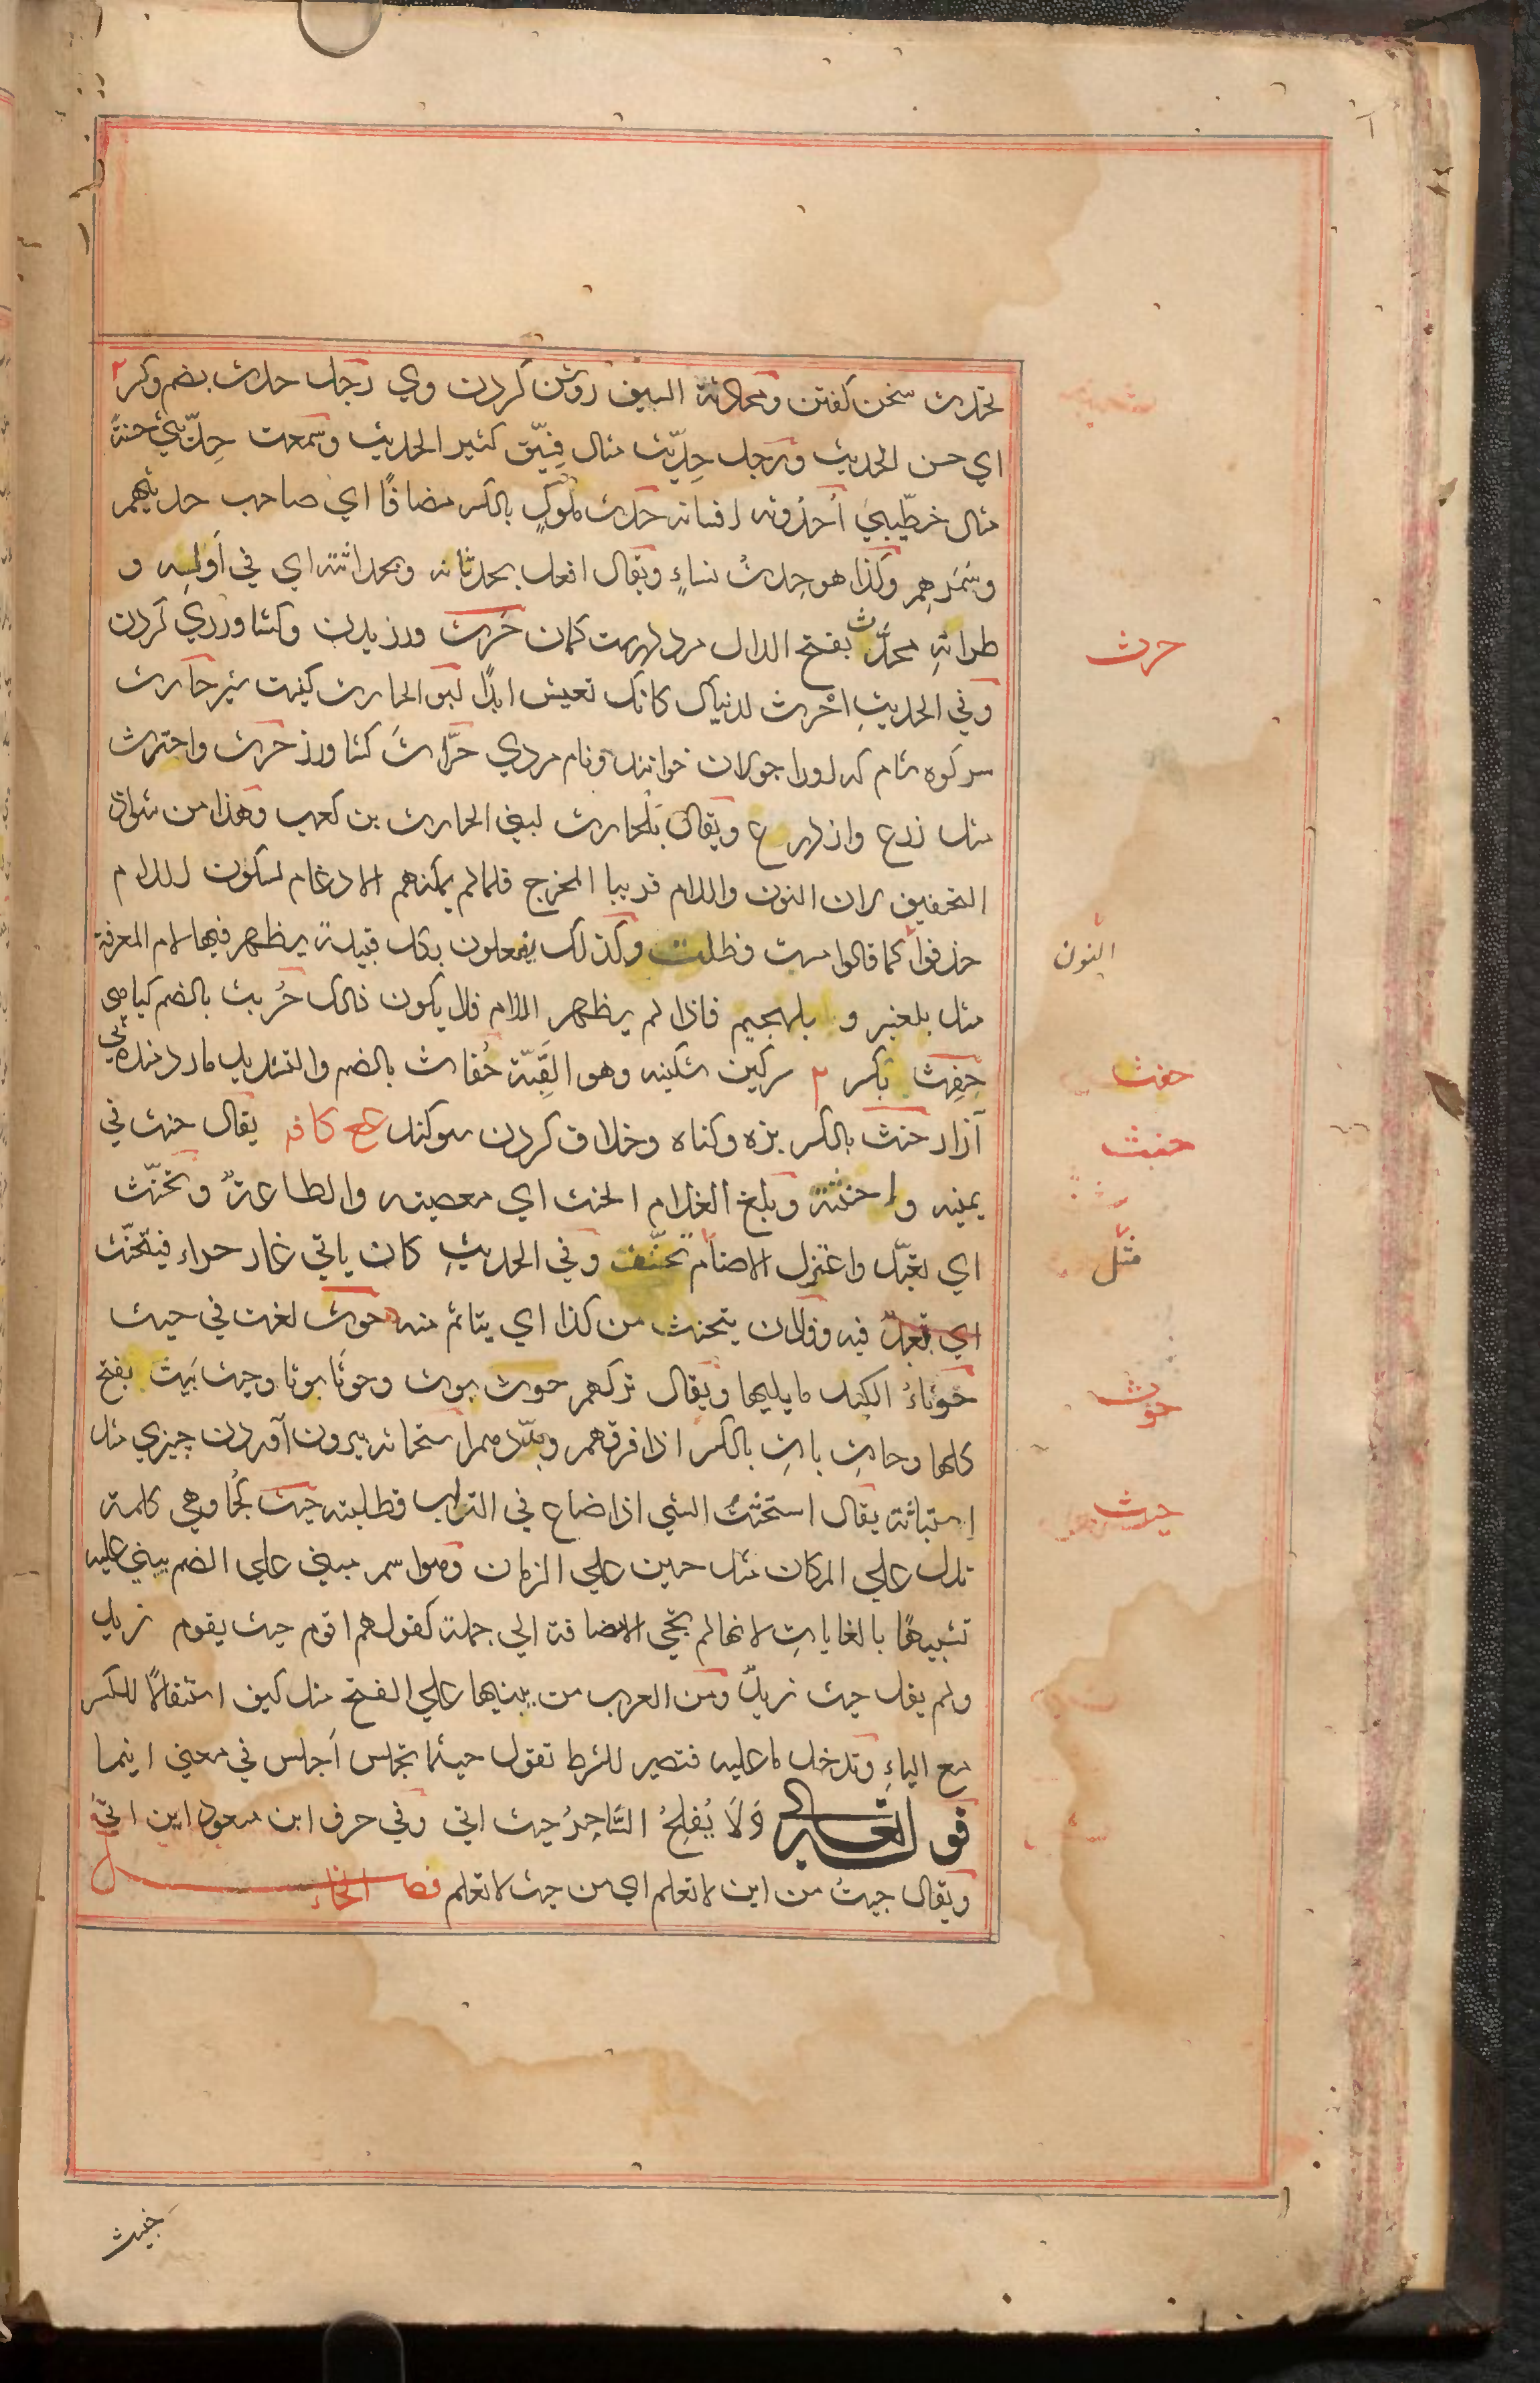 تحدث سخن گفتن ومحادثة السيف روشن کردن وي رجل حدث بضم وکسر ٢
اي حسن الحديث ورجل حِدّيث مثال فِسّيق کثير الحديث وسمعت حِدّيثي حسنة
مثال خطّيبي اُحدوثه افسانه حدث ملوکٍ بالکسر مضافًا اي صاحب حديثهم
وسَمَرهِم وکذا هو حِدثُ نساءٍ ويقال افعل بحدثانه وبحداثته اي في اَوّلِيه و
طراتهِ محدَّث بفتح الدال مرد راست کمان حَرث ورزيدن وکشاورزي کردن
وفي الحديثِ اُحْرث لدنياک کانک تعيش ابدًا ابو الحارث کنيت شير حارث
سر کوه شام که اورا جولان خوانند ونام مردي حرّاث کشاورز حرث واحترث
مثل زرع وازدرع ويقال بَلْحارث لبني الحارث بن کعب وهذا من شواذ
التخفيف لان النون واللام قريبا المخرج فلما لم يمکنهم الادغام لسکون اللام
حذفوا کما قالوا مست وظلت وکذلک يفعلون بکل قبيلة يظهر فيها لام المعرفة
مثل بلعنبر و بلهجيم فاذا لم يظهر اللام فلا يکون ذالک حُربث بالضم کياهي
حَفِث بکسر ٢ سرکين شکنبه وهو القِبّة حُفاث بالضم والتشديد مار دمنده بي
آزار حنث بالکسر بزه وکناه وخلاف کردن سوکند عع کافه يقال حنث في
يمينه واحنثته وبلغ الغلام الحنث اي معصيته والطاعة وتحنّث
اي تعبّد واعتزل الاصنام تحنّف وفي الحديثِ کان ياتي غار حراء فيتحنّث
اي تعبّد فيه وفلان يتحنث من کذا اي يتاثم منه حوث لغت في حيث
حَوْثاءُ الکبد ما يليها ويقال ترکهم حوث بوث وحوثًا بوثا وحيث بَيث بفتح
کلها وحاثِ باثِ بالکسر اذا فرقهم وبدّدهم استحاثه بيرون آوردن چيزي مثل
اِستباثة يقال استحثتُ الشي اذا ضاع في التراب فطلبته حيث کجا وهي کلمة
تدل علي المکان مثل حين علي الزمان وهو اسم مبني علي الضم بيني عليه
تشبيهًا بالغاياتِ لانها لم يجي الاضافة الي جملة کقولهم اقوم حيث يقوم زيد
ولم يقل حيث زيدٍ ومن العرب من يبنيها علي الفتح مثل کيف استثقالًا للکسر
مع الياءِ وتدخل ما عليه فتصير للشرط تقول حيثما تجلس اَجلس في معني اينما
قوله تعالي وَلَا يُفلِحُ السَّاحِرُ حيث اتي وفي حرف ابن مسعود اين اتي
ويقال جيتُ من اين لا تعلم اي من حيث لا تعلم فصل الخاء
حرث
النون
حفث
حنث
مثل
حوث
حيث
خبث